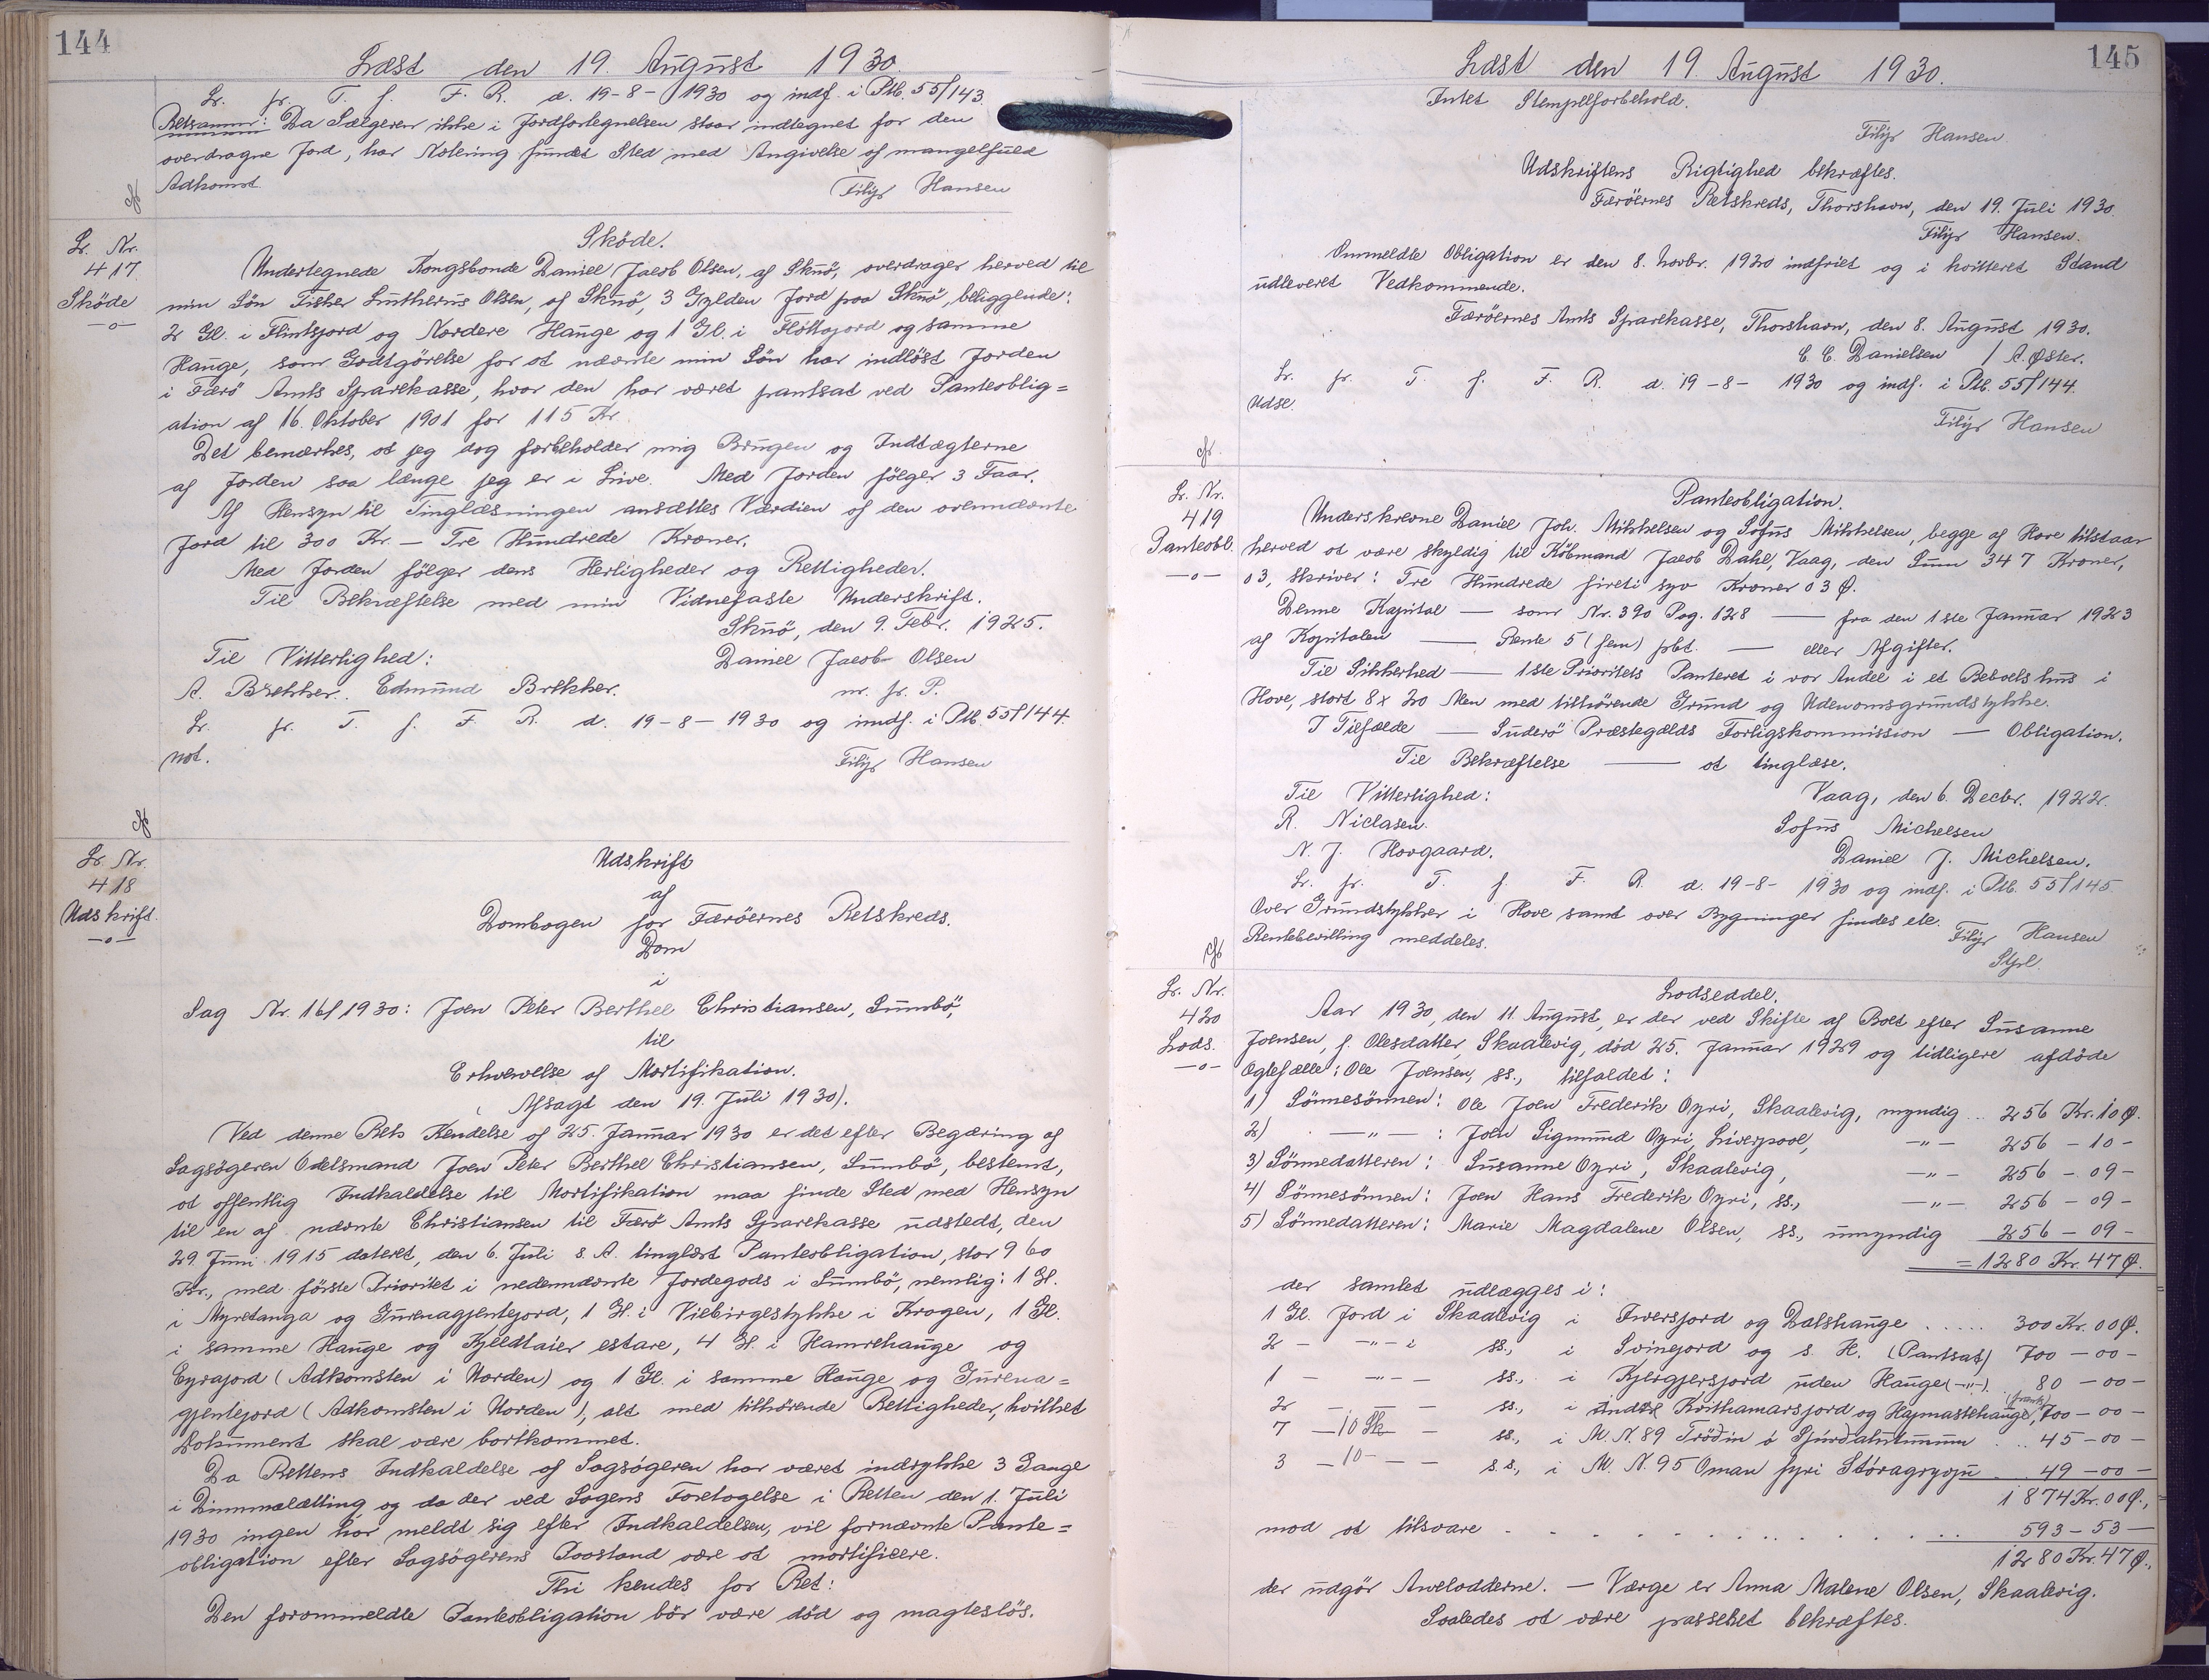 144
Læst den 19. August 1930.
Lr. fr. T. f. F. R. d. 19-8-1930 og indf. i Ptb. 55/143.
Retsanm: Da Sælgeren ikke i Jordfortegnelsen staar indtegnet for den
overdragne Jord, har Notering fundet Sted med Angivelse af mangelfuld
Adkomst. Filip Hansen
Lr. Nr.
417.
Sköde
—o—
Sköde.
Undertegnede Kongsbonde Daniel Jacob Olsen, af Skuö, overdrager herved til
min Sön Fisker Lutherus Olsen, af Skuö, 3 Gylden Jord paa Skuö, beliggende:
2 Gl. i Flintsjord og Nordere Hauge og 1 Gl. i Flöttojord og samme
Hauge, som Godtgörelse for at nævnte min Sön har indlöst Jorden
i Færö Amts Sparekasse, hvor den har været pantsat ved Panteoblig=
ation af 16. Oktober 1901 for 115 Kr.
Det bemærkes, at jeg dog forbeholder mig Brugen og Indtægterne
af Jorden saa længe jeg er i Live. Med Jorden fölger 3 Faar.
Af Hensyn til Tinglæsningen ansættes Værdien af den ovennævnte
Jord til 300 Kr. — Tre Hundrede Kroner.
Med Jorden fölger dens Herligheder og Rettigheder.
Til Bekræftelse med min Vidnefaste Underskrift.
Skuö, den 9. Febr. 1925.
Til Vitterlighed: Daniel Jacob Olsen
A. Brekker. Edmund Brekker. m. f. P.
Lr. fr. T. f. F. R. d. 19-8-1930 og indf. i Ptb. 55/144.
not. Filip Hansen
Lr. Nr.
418
Udskrift.
—o—
Udskrift
af
Dombogen for Færöernes Retskreds.
Dom
i
Sag Nr. 16/1930: Joen Peter Berthel Christiansen, Sumbö,
til
Erhvervelse af Mortifikation.
(Afsagt den 19. Juli 1930).
Ved denne Rets Kendelse af 25. Januar 1930 er det efter Begæring af
Sagsögeren Odelsmand Joen Peter Berthel Christiansen, Sumbö, bestemt,
at offentlig Indkaldelse til Mortifikation maa finde Sted med Hensyn
til en af nævnte Christiansen til Færö Amts Sparekasse udstedt, den
29. Juni 1915 dateret, den 6. Juli s. A. tinglæst Panteobligation, stor 960
Kr., med förste Prioritet i nedennævnte Jordegods i Sumbö, nemlig: 1 Gl.
i Myretanga og Gurenagjentejord, 1 Gl. i Viebirgestykke i Krogen, 1 Gl.
i samme Hauge og Kjeldtaier estare, 4 Gl. i Hamrehauge og
Eyrajord (Adkomsten i Norden) og 1 Gl. i samme Hauge og Gurena=
gjentejord (Adkomsten i Norden), alt med tilhörende Rettigheder, hvilket
Dokument skal være bortkommet.
Da Rettens Indkaldelse af Sagsögeren har været indrykke 3 Gange
i Dimmalætting og da der ved Sagens Foretagelse i Retten den 1. Juli
1930 ingen har meldt sig efter Indkaldelsen, vil fornævnte Pante=
obligation efter Sagsögerens Paastand være at mortificere.
Thi kendes for Ret:
Den forommeldte Panteobligation bör være död og magteslös.
145
Læst den 19 August 1930.
Intet Stempelforbehold.
Filip Hansen.
Udskriftens Rigtighed bekræftes.
Færöernes Retskreds, Thorshavn, den 19. Juli 1930.
Filip Hansen.
Ommeldte Obligation er den 8. Novbr. 1920 indfriet og i kvitteret Stand
udleveret Vedkommende.
Færöernes Amts Sparekasse, Thorshavn, den 8. August 1930.
C. C. Danielsen / A. Øster.
Lr. fr. T. f. F. R. d. 19-8- 1930 og indf. i Ptb. 55/144.
Udsl.
Filip Hansen
Lr. Nr.
419
Panteobl.
—o—
Panteobligation.
Underskrevne Daniel Joh. Mikkelsen og Sofus Mikkelsen, begge af Hove tilstaar
herved at være skyldig til Köbmand Jacob Dahl, Vaag, den Sum 347 Kroner,
03, skriver: Tre Hundrede fireti syv Kroner 03 Ø.
Denne Kapital — som Nr. 390 Pag. 128 — fra den 1ste Januar 1923
af Kapitalen — Rente 5 (fem) pCt. — eller Afgifter.
Til Sikkerhed — 1ste Prioritets Panteret i vor Andel i et Beboelshus i
Hove, stort 8 x 20 Alen med tilhörende Grund og Udenomsgrundstykke.
I Tilfælde — Suderö Præstegælds Forligskommission — Obligation.
Til Bekræftelse — at tinglæse.
Til Vitterlighed: Vaag, den 6. Decbr. 1922.
R. Niclasen. Sofus Michelsen
N. J. Hovgaard. Daniel J. Michelsen.
Lr. fr. T. f. F. R. d. 19-8- 1930 og indf. i Ptb. 55/145.
Over Grundstykker i Hove samt over Bygninger findes ele.
Rentebevilling meddeles. Filip Hansen
Lr. Nr.
420
Lods.
—o—
Lodseddel.
Aar 1930, den 11. August, er der ved Skifte af Boet efter Susanne
Joensen, f. Olesdatter, Skaalevig, död 25. Januar 1929 og tidligere afdöde
Ægtefælle: Ole Joensen, ss., tilfaldet:
1) Sönnesönnen: Ole Joen Frederik Oyri, Skaalevig, myndig .. 256 Kr. 10 Ø.
2) —"— : Joen Sigmund Oyri, Liverpool, —"— 256 - 10 -
3) Sönnedatteren: Susanne Oyri, Skaalevig, —"— 256 - 09 -
4) Sönnesönnen: Joen Hans Frederik Oyri, ss., —"— 256 - 09 -
5) Sönnedatteren: Marie Magdalene Olsen, ss., umyndig 256 - 09 -
= 1280 Kr. 47 Ø.
der samlet udlægges i:
1 Gl. Jord i Skaalevig i Tversjord og Dalshauge ..... 300 Kr. 00 Ø.
2 - -"- i ss., i Svinejord og s. H. (Pantsat) 700 - 00 -
1 - -"- - ss., i Kjergjersjord uden Hauge (-"-). 80 - 00 -
2 - — - ss., i Indtil Kvithamarsjord og Højmastehauge, 700 - 00 -
7 — 10 Sk — ss., i M. N. 89 Tröðin ó Sjúrðatúnunum .. 45 - 00 -
3 — 10 — — s.s., i M. N. 95 Oman fyri Stóragryoju .. 49 - 00 -
1874 Kr. 00 Ø.,
mod at tilsvare . . . . . . . . 593 - 53 —
1280 Kr. 47 Ø.,
der udgör Arvelodderne. — Værge er Anna Malene Olsen, Skaalevig.
Saaledes at være passeret bekræftes.